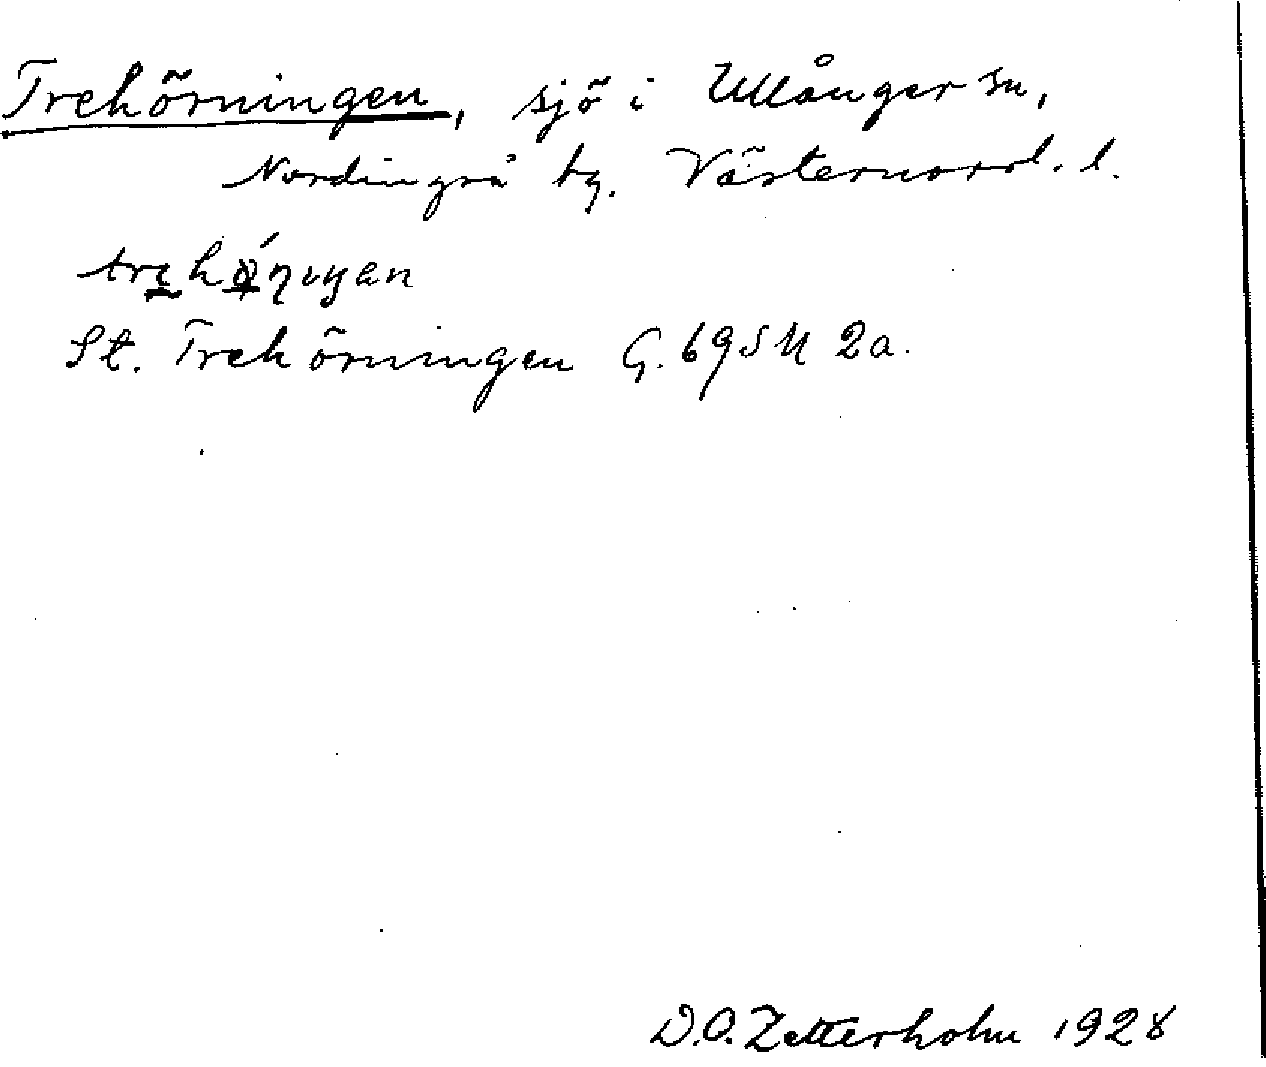 Trehörningen, sjö i Ullånger sn,
Nordingrå tg. Västernorrl. l.
St. Trehörningen G. 69 SM 2a.
D.O. Zetterholm 1928